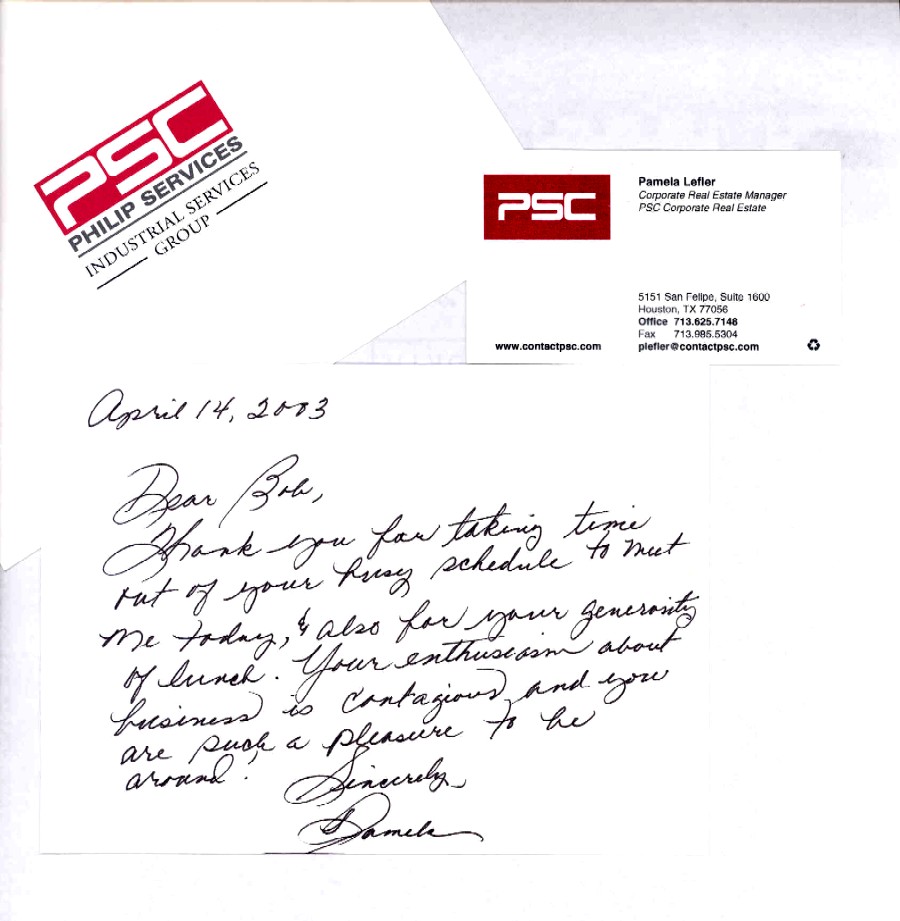 PSC
PHILIP SERVICES
INDUSTRIAL SERVICES
GROUP
PSC
Pamela Lefler
Corporate Real Estate Manager
PSC Corporate Real Estate
5151 San Felipe, Suite 1600
Houston, TX 77056
Office 713.625.7148
Fax 713.985.5304
www.contactpsc.com plefler@contactpsc.com
April 14, 2003
Dear Bob,
Thank you for taking time
out of your busy schedule to meet
me today, & also for your generosity
of lunch. Your enthusiasm about
business is contagious and you
are such a pleasure to be
around.
Sincerely,
Pamela